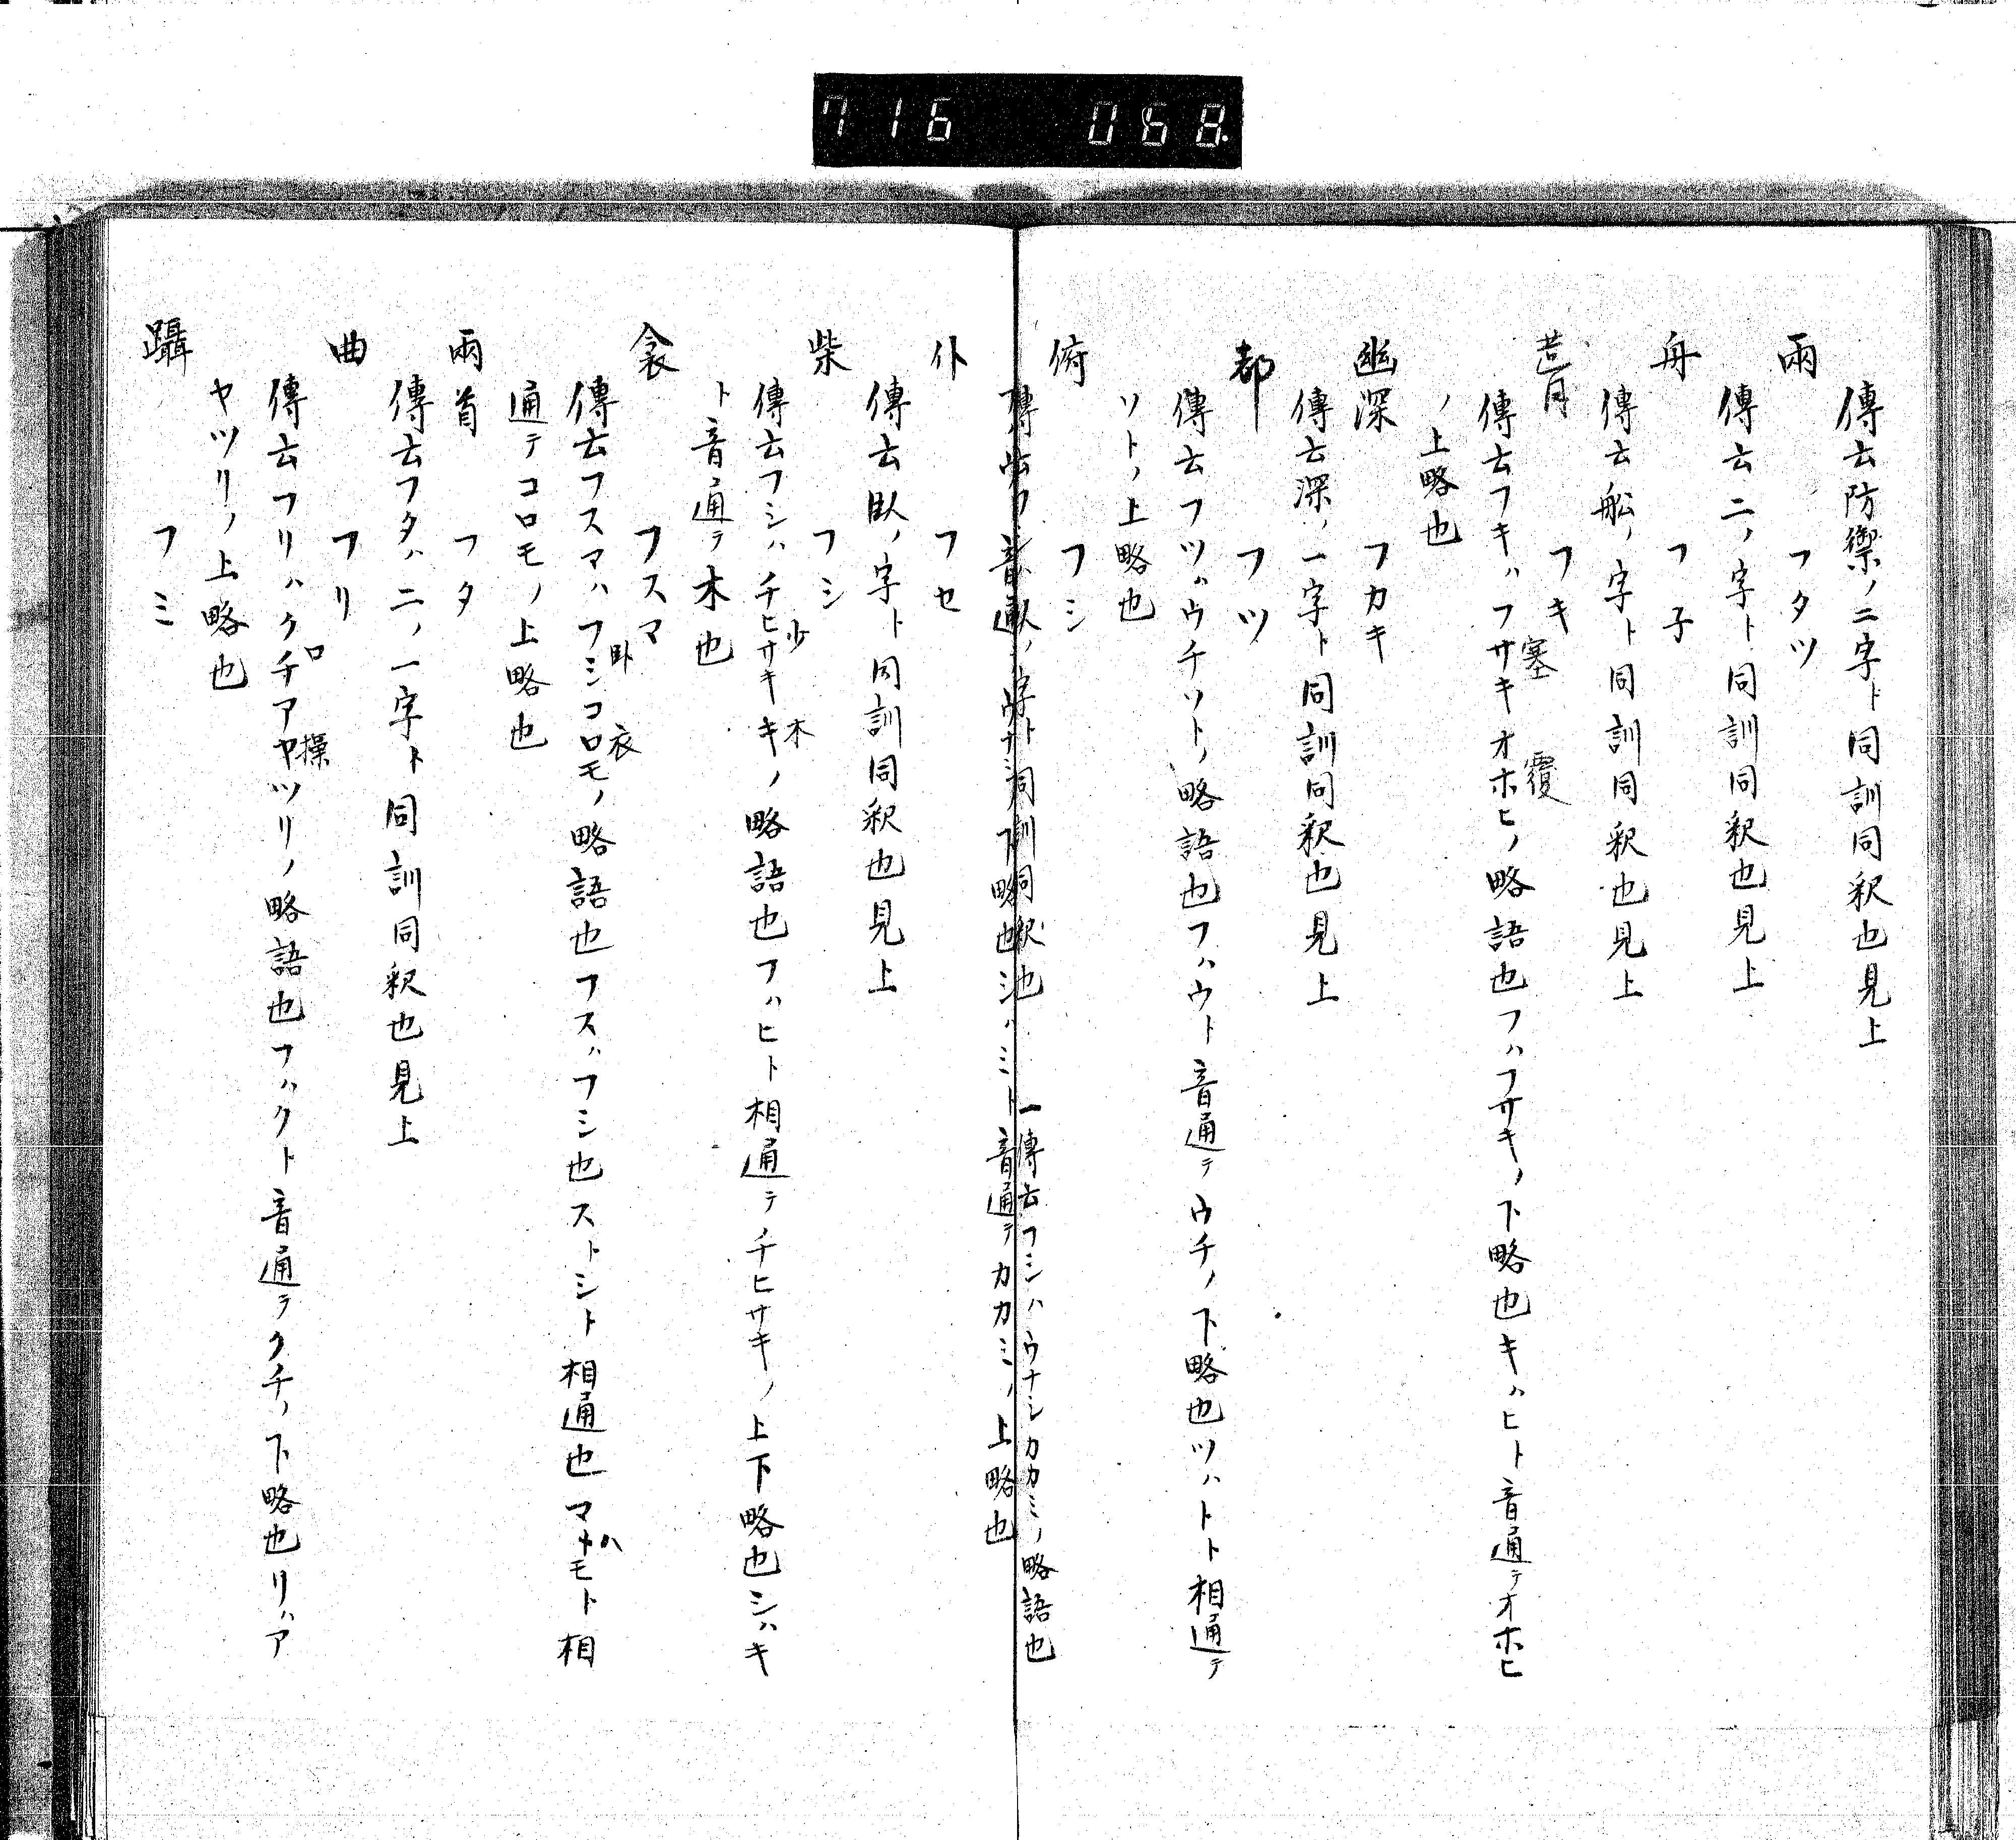 716 068
傳云防禦ノ二字ト同訓同釈也見上
兩 フタツ
傳云二ノ字ト同訓同釈也見上
舟 フ子
傳云舩ノ字ト同訓同釈也見上
フキ
傳云フキハフサキオホヒノ略語也フハフサキノ下略也キハヒト音通テオホヒ
塞 覆
ノ上略也
幽深 フカキ
傳云深ノ一字ト同訓同釈也見上
都 フツ
傳云フツハウチソトノ略語也フハウト音通テウチノ下略也ツハトト相通テ
ソトノ上略也
俯 フシ
臥ノ字ト同訓同釈也 一傳云フシハウナシカカミノ略語也
下略也シハミト音通テカカミノ上略也
仆 フセ
傳云臥ノ字ト同訓同釈也見上
柴 フシ
傳云フシハチヒサキキノ略語也フハヒト相通テチヒサキノ上下略也シハキ
少 木
ト音通テ木也
衾 フスマ
傳云フスマハフシコロモノ略語也フスハフシ也ストシト相通也マハモト相
臥 衣
通テコロモノ上略也
兩首 フタ
傳云フタハ二ノ一字ト同訓同釈也見上
曲 フリ
傳云フリハクチアヤツリノ略語也フハクト音通テクチノ下略也リハア
口 操
ヤツリノ上略也
躡 フミ